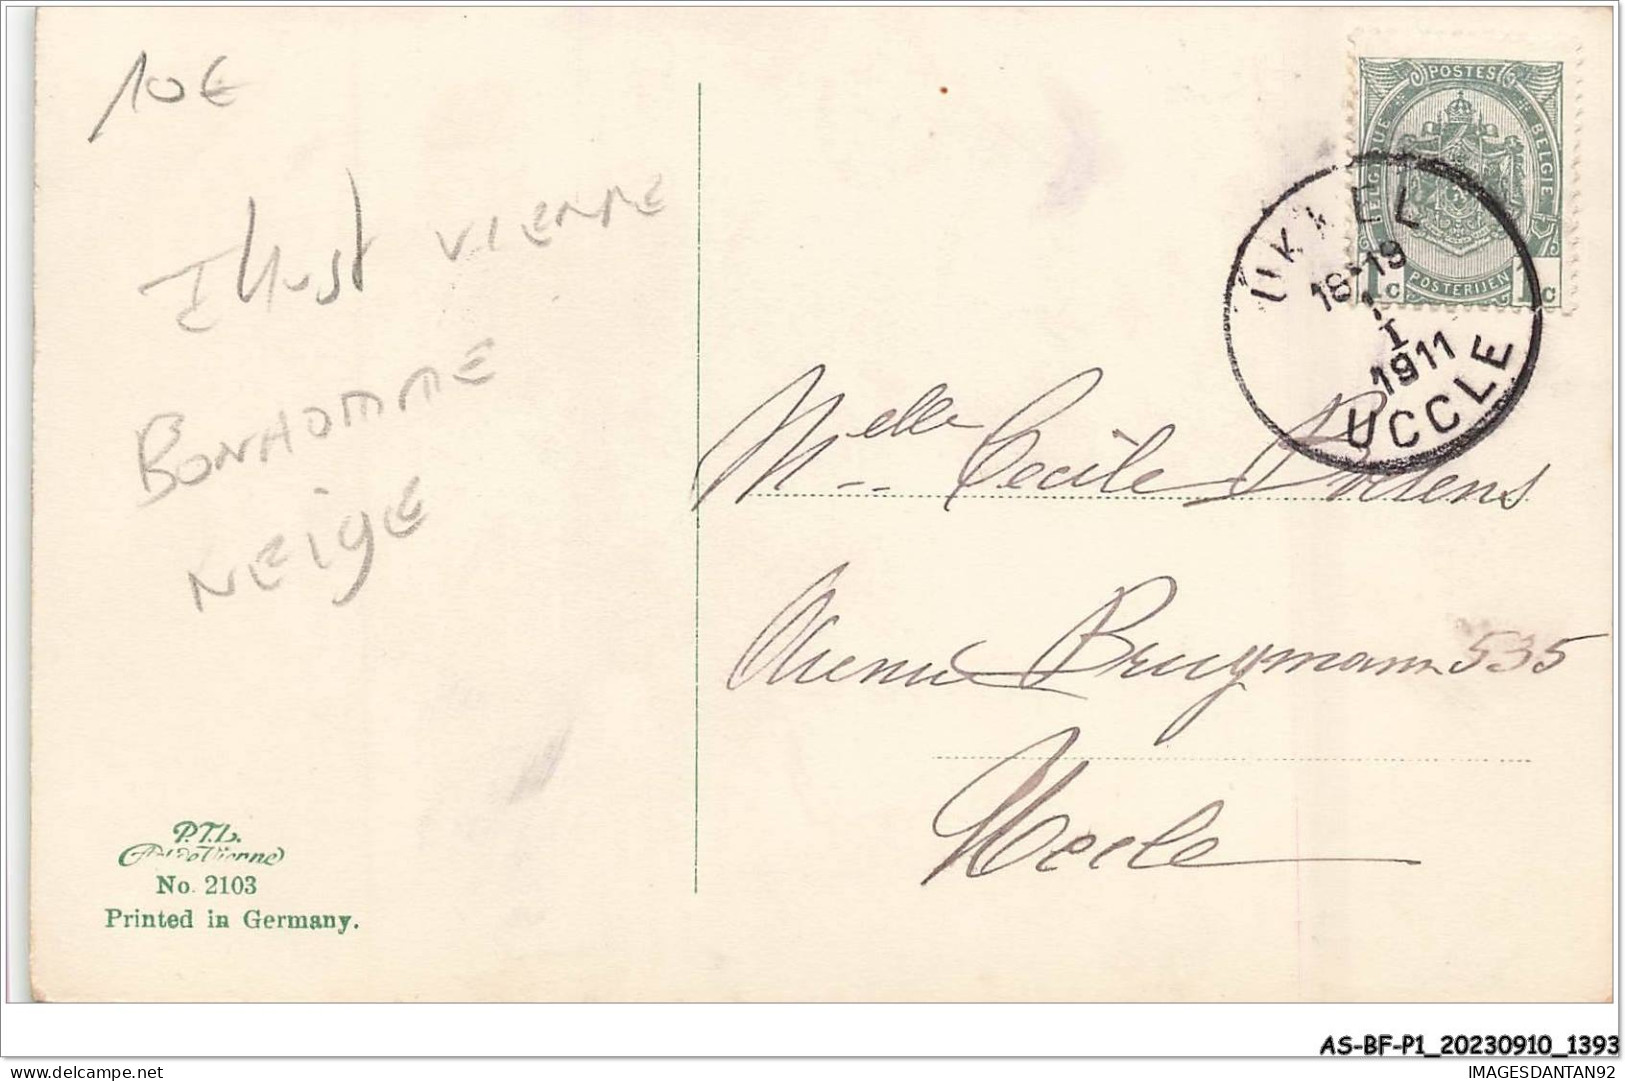 10€
Illust VIENNE
BONHOMME
NEIGE
POSTES
BELGIQUE
BELGIE
POSTERIJEN
1c 1c
UKKEL
18-19
1
I
1911
UCCLE
Melle Cecile
Avenue Brugmann 535
Uccle
P.T.L.
Art de Vienne
No. 2103
Printed in Germany.
AS-BF-P1_20230910_1393
IMAGESDANTAN92